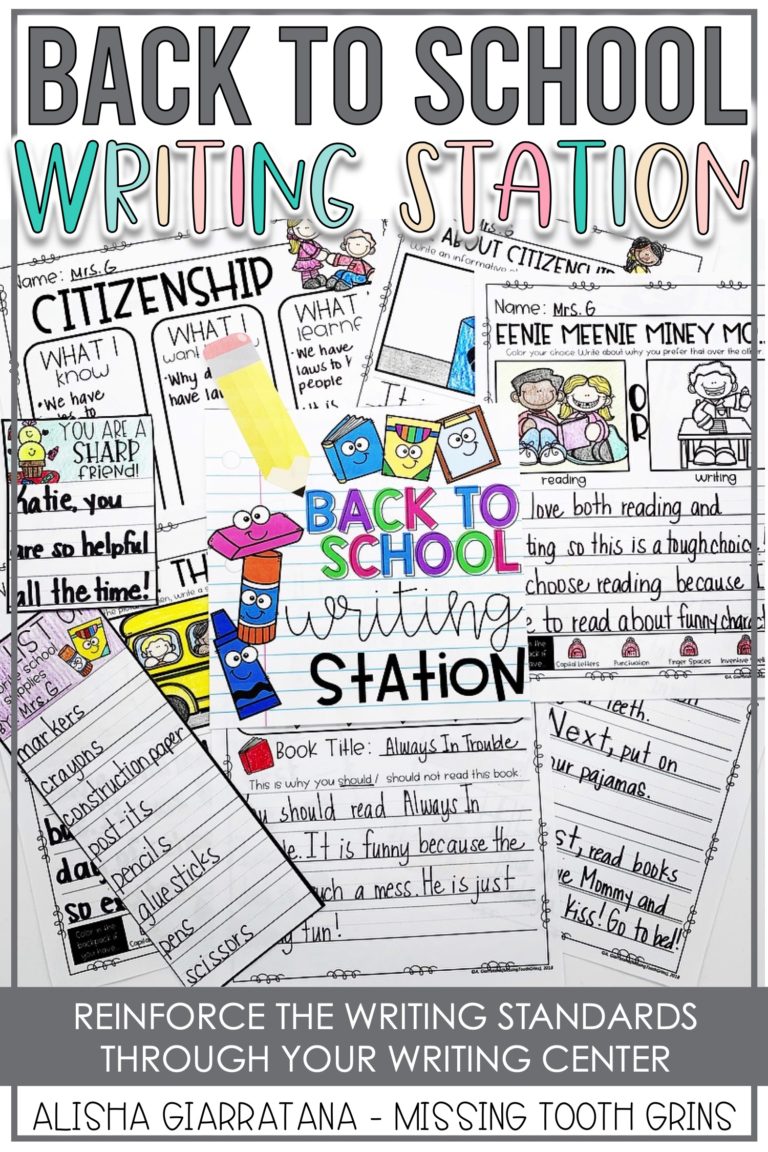 BACK TO SCHOOL
WRITING STATION
Name: Mrs. G
CITIZENSHIP
WHAT I
know
• We have
WHAT I
• Why
WHAT
• We have
laws to
people
Mrs. G
ABOUT
Write an informative
Name: Mrs. G
EENIE MEENIE MINEY MO...
Color your choice. Write about why you prefer that over the other.
OR
reading
writing
love both reading and
so this is a tough choice!
choose reading because I
to read about funny
Capital Letters
Punctuation
Finger Spaces
YOU ARE A
SHARP
friend!
Katie, you
are so helpful
all the time!
BACK TO
SCHOOL
writing
STATION
supplies
By: Mrs. G
markers
crayons
construction paper
post-its
pencils
glue sticks
pens
scissors
so
Color in the
backpack if
you have
Book Title: Always In Trouble
This is why you should / should not read this book.
should read Always In
It is funny because the
such a mess. He is just
fun!
teeth.
Next, put on
your pajamas.
read books
Mommy and
kiss! Go to bed!
REINFORCE THE WRITING STANDARDS
THROUGH YOUR WRITING CENTER
ALISHA GIARRATANA - MISSING TOOTH GRINS